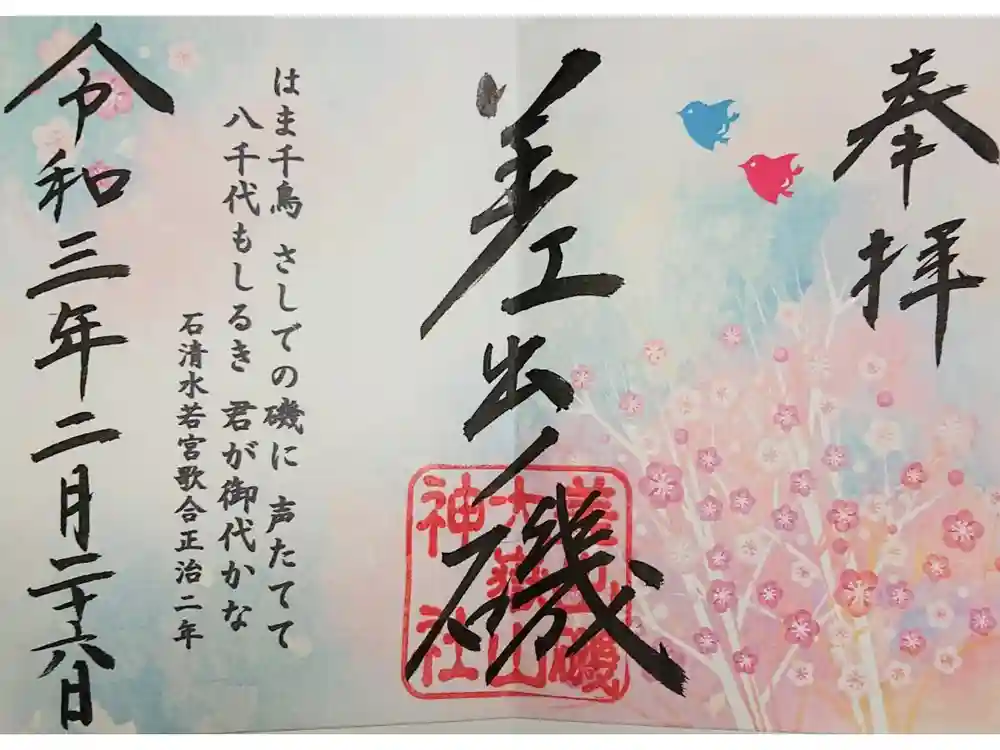 奉拝
差出ノ磯
差出磯
大嶽山
神社
はま千鳥 さしでの磯に 声たてて
八千代もしるき 君が御代かな
石清水若宮歌合正治二年
令和三年二月二十六日